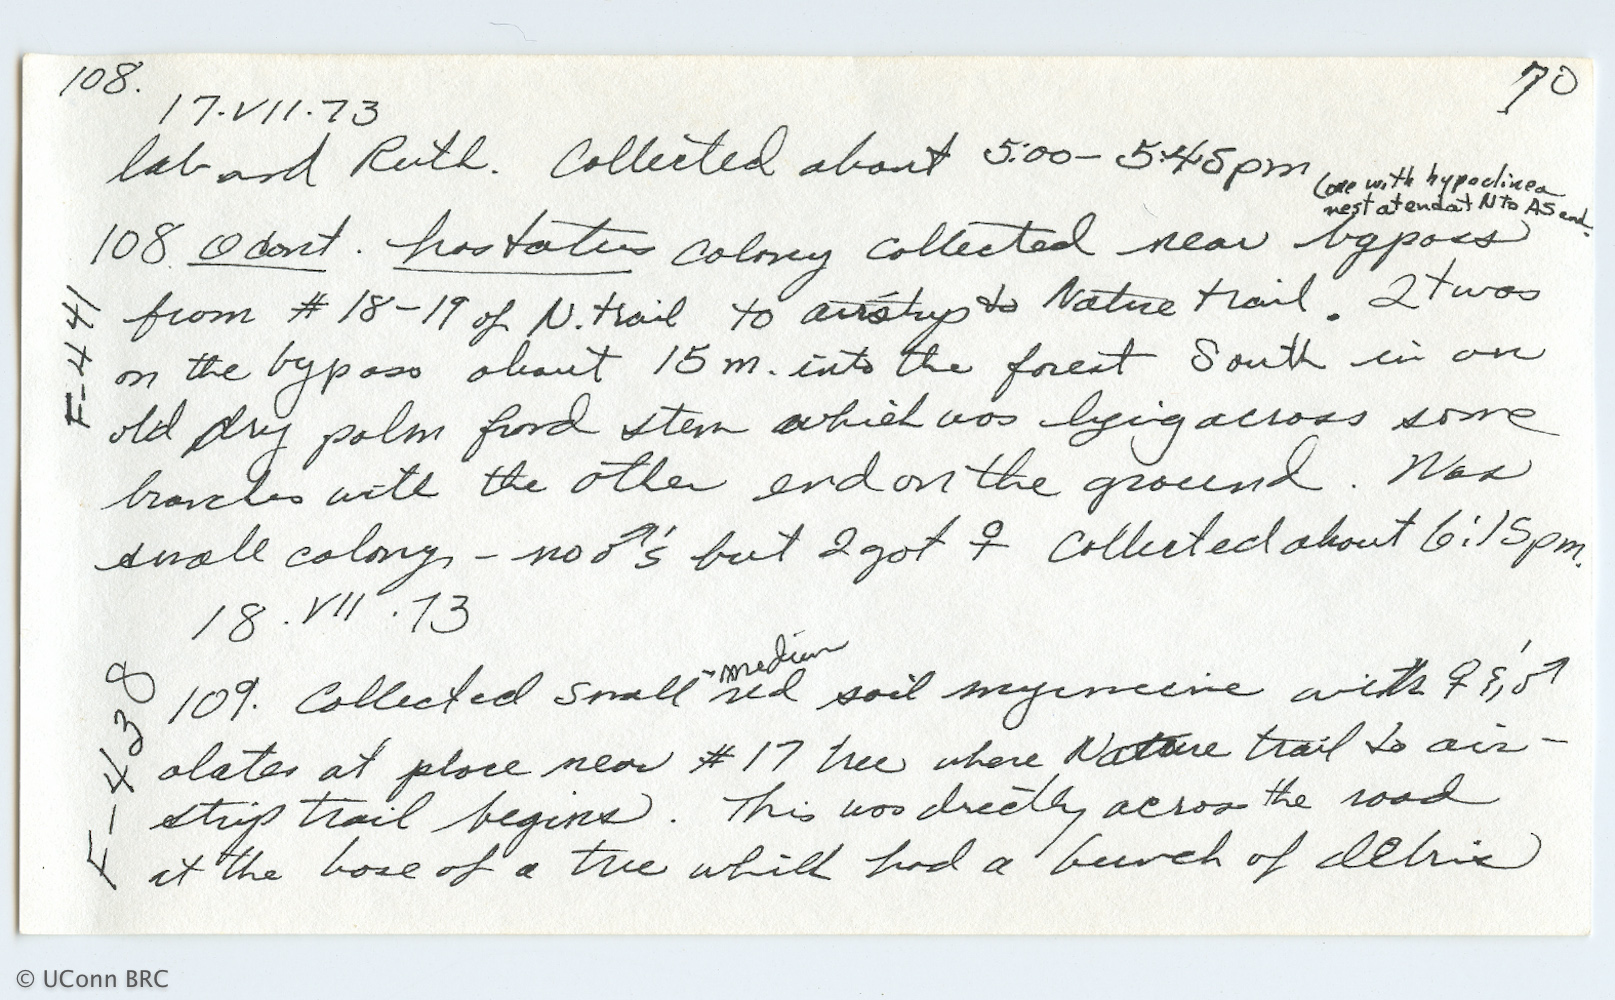 108.
70
17.VII.73
lab and Ruth. Collected about 5:00-5:45pm
(one with hypoclinea
nest at end at N to AS end.
108. Odont. hastatus colony collected near bypass
F-441
from # 18-19 of N. trail to airstrip to Nature trail. It was
on the bypass about 15 m. into the forest South in an
old dry palm frond stem which was lying across some
branches with the other end on the ground. Was
small colony - no ♂'s but I got ♀ Collected about 6:15pm.
18.VII.73
F-438
109. Collected small-medium red soil myrmicine with ♀ & ♂
alates at place near #17 tree where Nature trail to air-
strip trail begins. This was directly across the road
at the base of a tree which had a bunch of debris
© UConn BRC